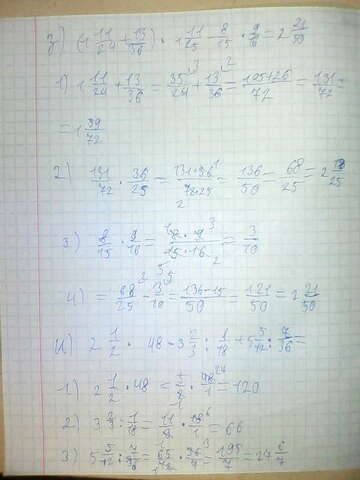 з) (1 11/24 + 13/36) · 1 11/25 - 8/15 · 9/16 = 2 21/50
1) 1 11/24 + 13/36 = 35/24 + 13/36 = 105+26/72 = 131/72 =
= 1 59/72
2) 131/72 · 36/25 = 131·36/72·25 = 136/50 = 68/25 = 2 18/25
3) 8/15 · 9/16 = 8·9/15·16 = 3/10
4) = 68/25 - 3/10 = 136-15/50 = 121/50 = 2 21/50
и) 2 1/2 · 48 - 3 2/3 : 1/18 + 5 5/12 : 7/36 =
1) 2 1/2 · 48 = 5/2 · 48/1 = 120
2) 3 2/3 : 1/18 = 11/3 · 18/1 = 66
3) 5 5/12 : 7/36 = 65/12 · 36/7 = 195/7 = 27 6/7